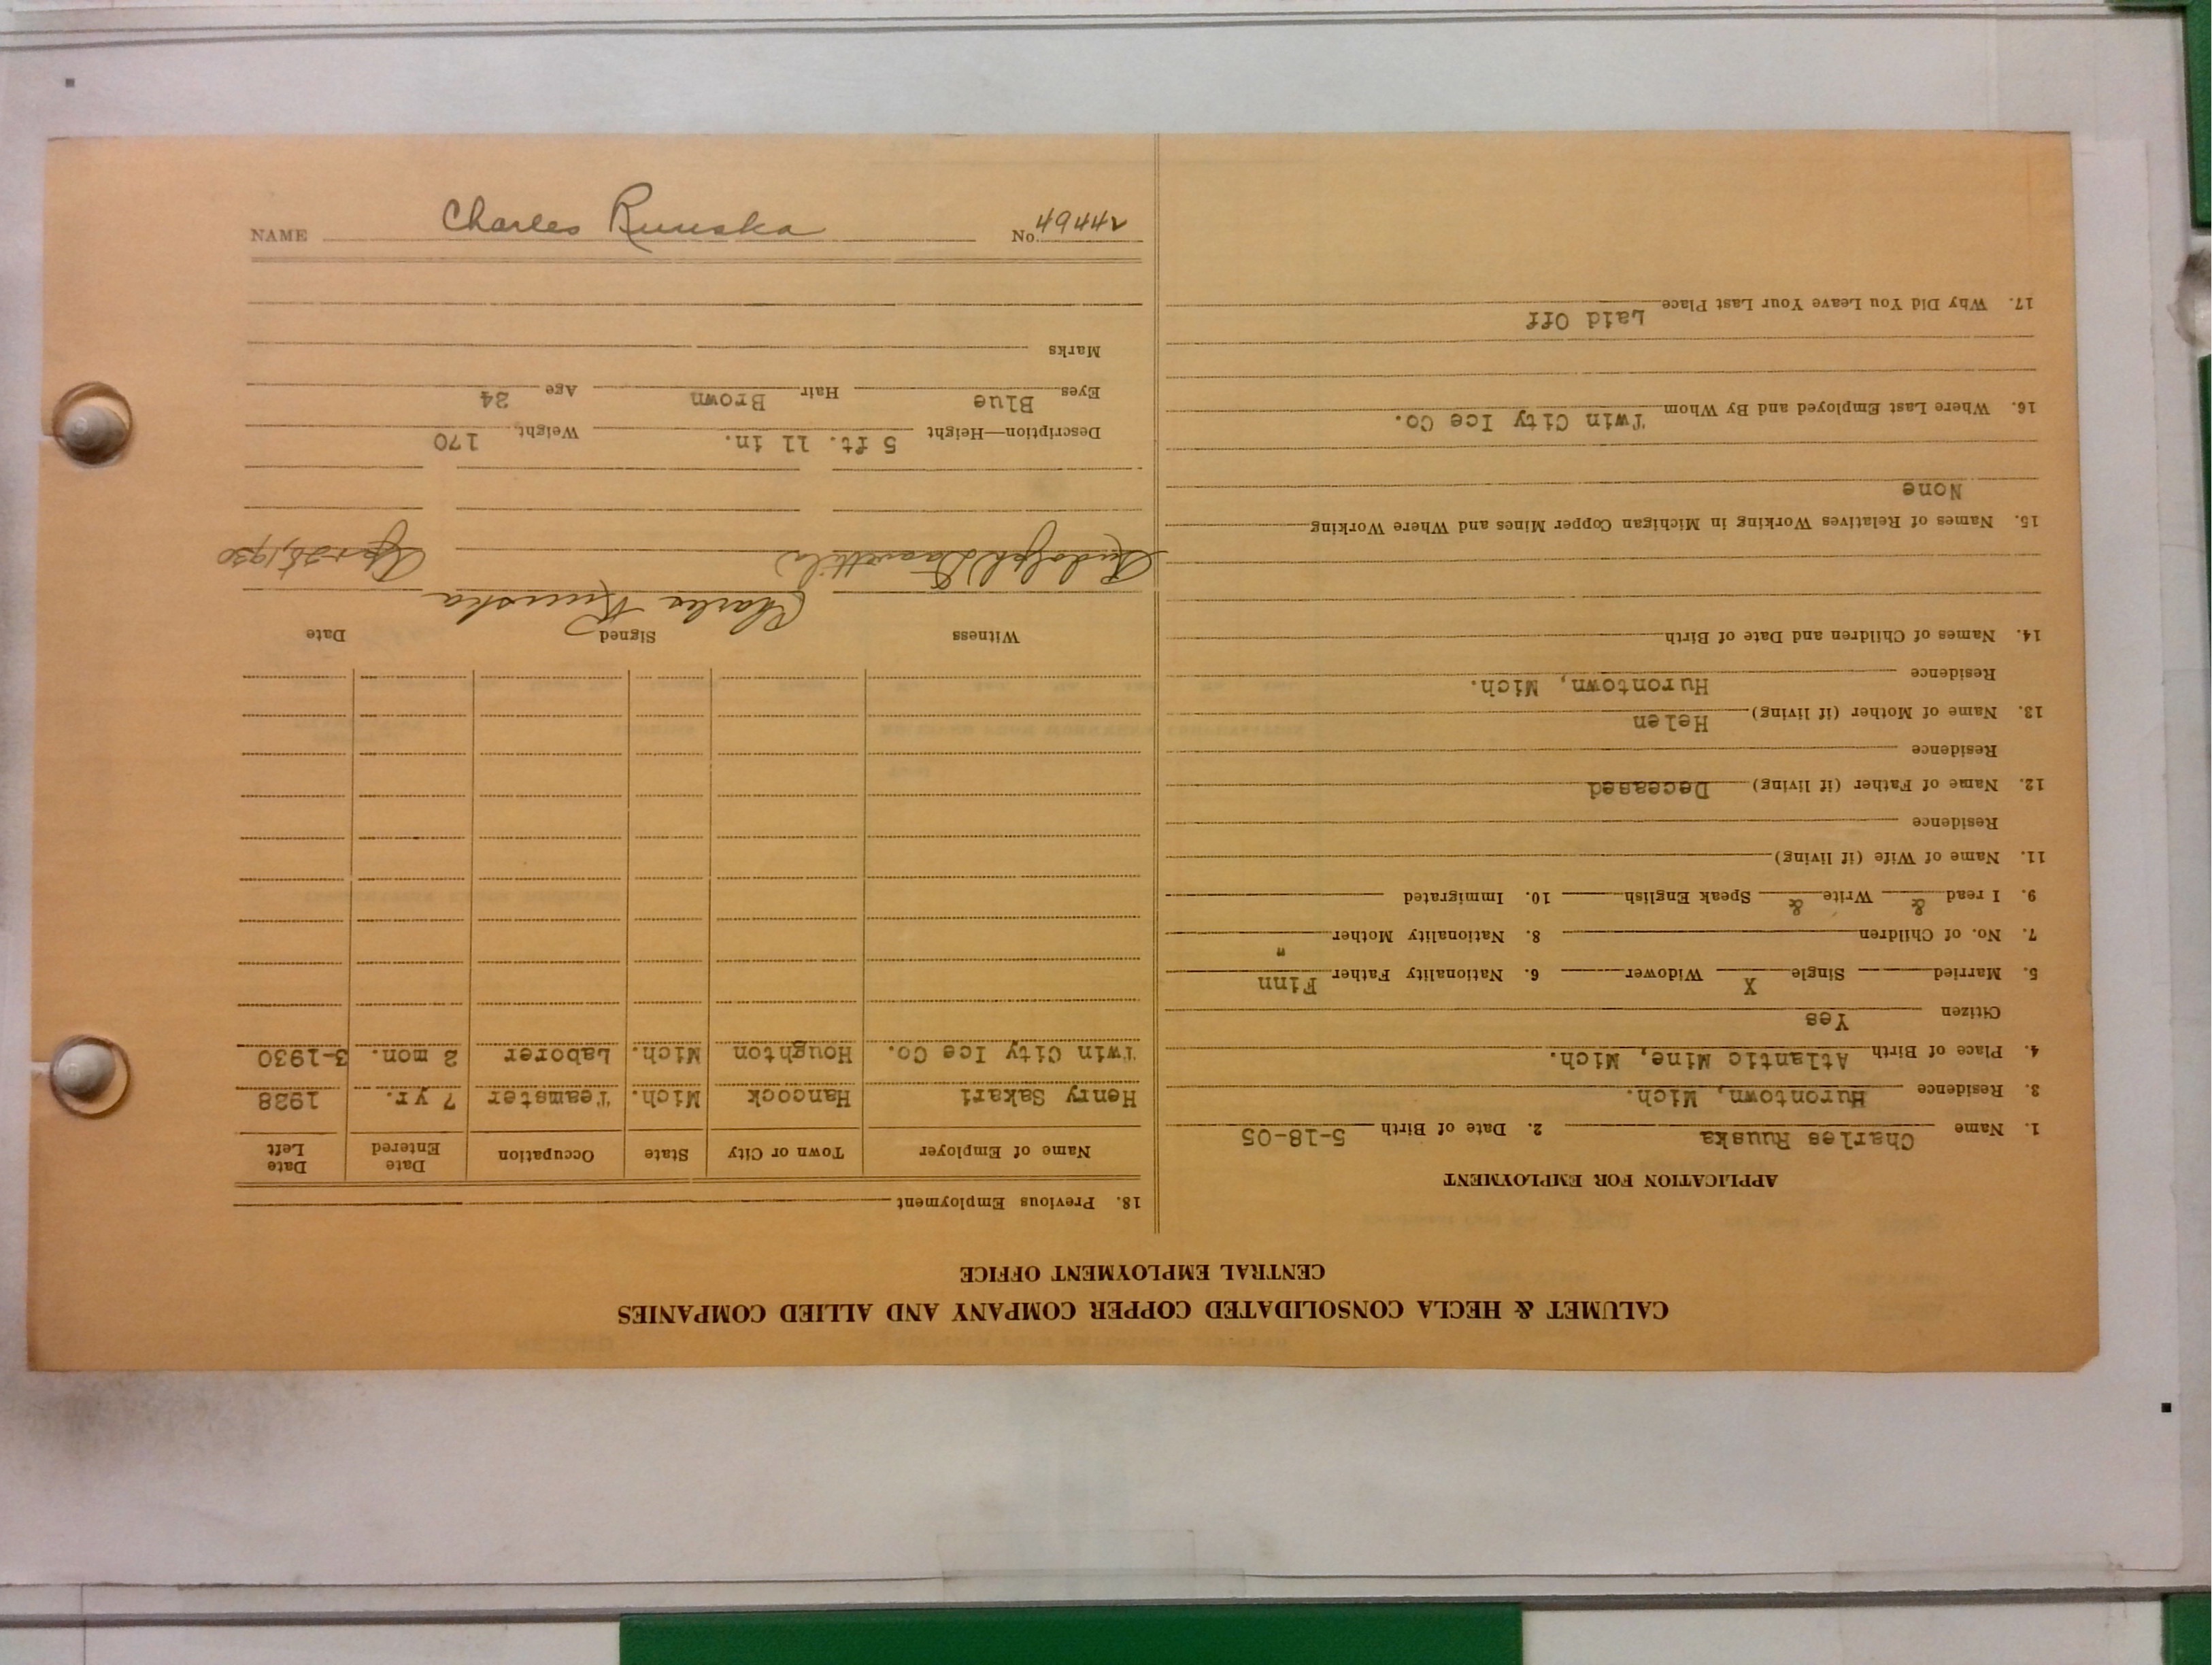 CALUMET & HECLA CONSOLIDATED COPPER COMPANY AND ALLIED COMPANIES
CENTRAL EMPLOYMENT OFFICE
APPLICATION FOR EMPLOYMENT
1. Name Charles Ruuska 2. Date of Birth 5-18-05
3. Residence Hurontown, Mich.
4. Place of Birth Atlantic Mine, Mich.
Citizen Yes
5. Married Single X Widower 6. Nationality Father Finn
7. No. of Children 8. Nationality Mother "
9. I read & Write & Speak English 10. Immigrated
11. Name of Wife (if living)
Residence
12. Name of Father (if living) Deceased
Residence
13. Name of Mother (if living) Helen
Residence Hurontown, Mich.
14. Names of Children and Date of Birth
15. Names of Relatives Working in Michigan Copper Mines and Where Working
None
16. Where Last Employed and By Whom Twin City Ice Co.
17. Why Did You Leave Your Last Place Laid Off
18. Previous Employment
Name of Employer Town or City State Occupation Date Entered Date Left
Henry Sakari Hancock Mich. Teamster 7 yr. 1928
Twin City Ice Co. Houghton Mich. Laborer 2 mon. 3-1930
Witness Signed Date
Rudolph Charles Ruuska Apr 1930
Description—Height 5 ft. 11 in. Weight 170
Eyes Blue Hair Brown Age 24
Marks
NAME Charles Ruuska No. 49442